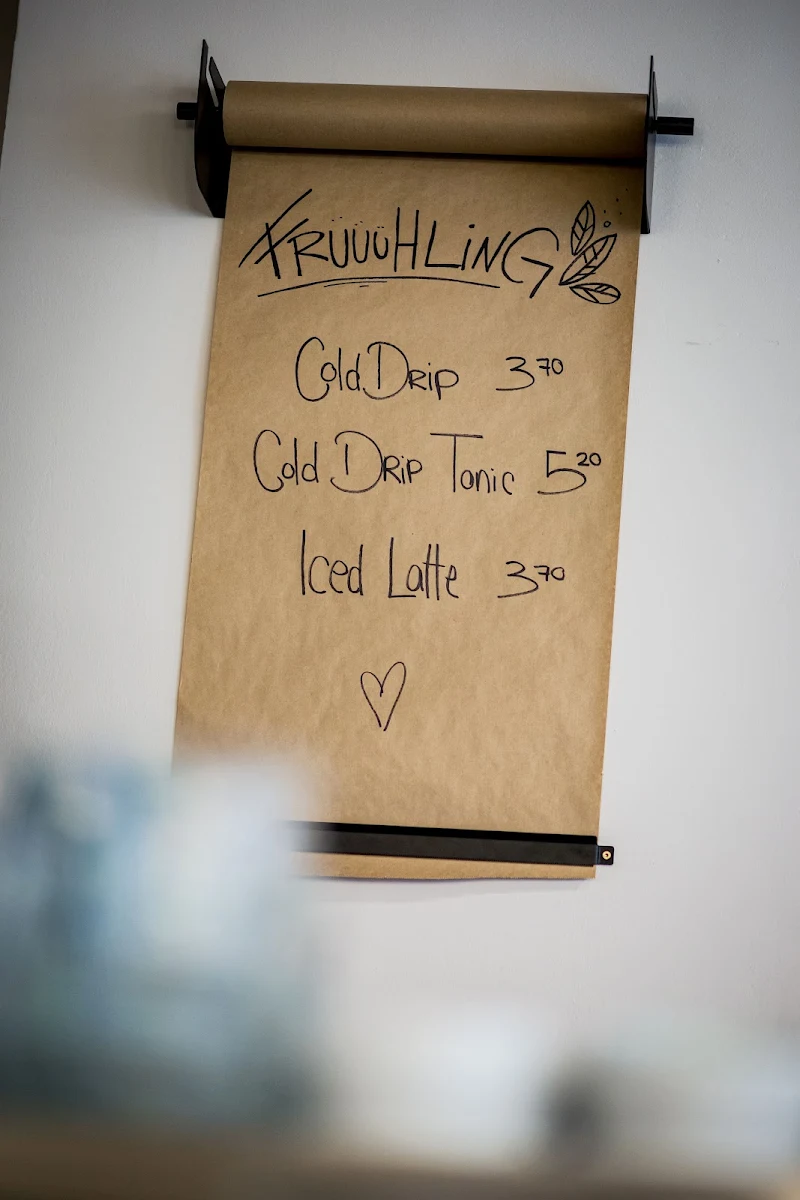 FRÜÜÜHLiNG
Cold Drip 3⁷⁰
Cold Drip Tonic 5²⁰
Iced Latte 3⁷⁰